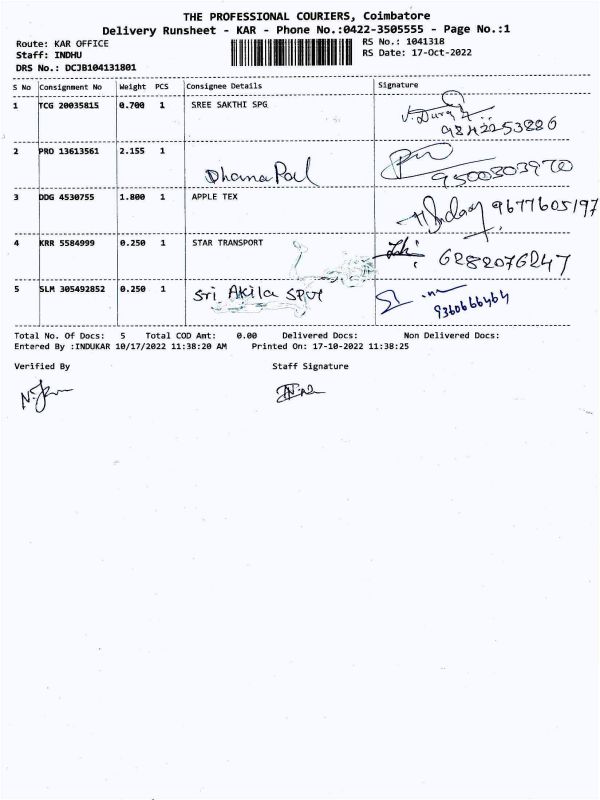 THE PROFESSIONAL COURIERS, Coimbatore
Delivery Runsheet - KAR - Phone No.:0422-3505555 - Page No.:1
Route: KAR OFFICE RS No.: 1041318
Staff: INDHU RS Date: 17-Oct-2022
DRS No.: DCJB104131801
S No Consignment No Weight PCS Consignee Details Signature
1 TCG 20035815 0.700 1 SREE SAKTHI SPG
9842253886
2 PRO 13613561 2.155 1
Dhana Pal 9500303970
3 DDG 4530755 1.800 1 APPLE TEX
9677605197
4 KRR 5584999 0.250 1 STAR TRANSPORT
6282076247
5 SLM 305492852 0.250 1 Sri Akila
9360666464
Total No. Of Docs: 5 Total COD Amt: 0.00 Delivered Docs: Non Delivered Docs:
Entered By :INDUKAR 10/17/2022 11:38:20 AM Printed On: 17-10-2022 11:38:25
Verified By Staff Signature